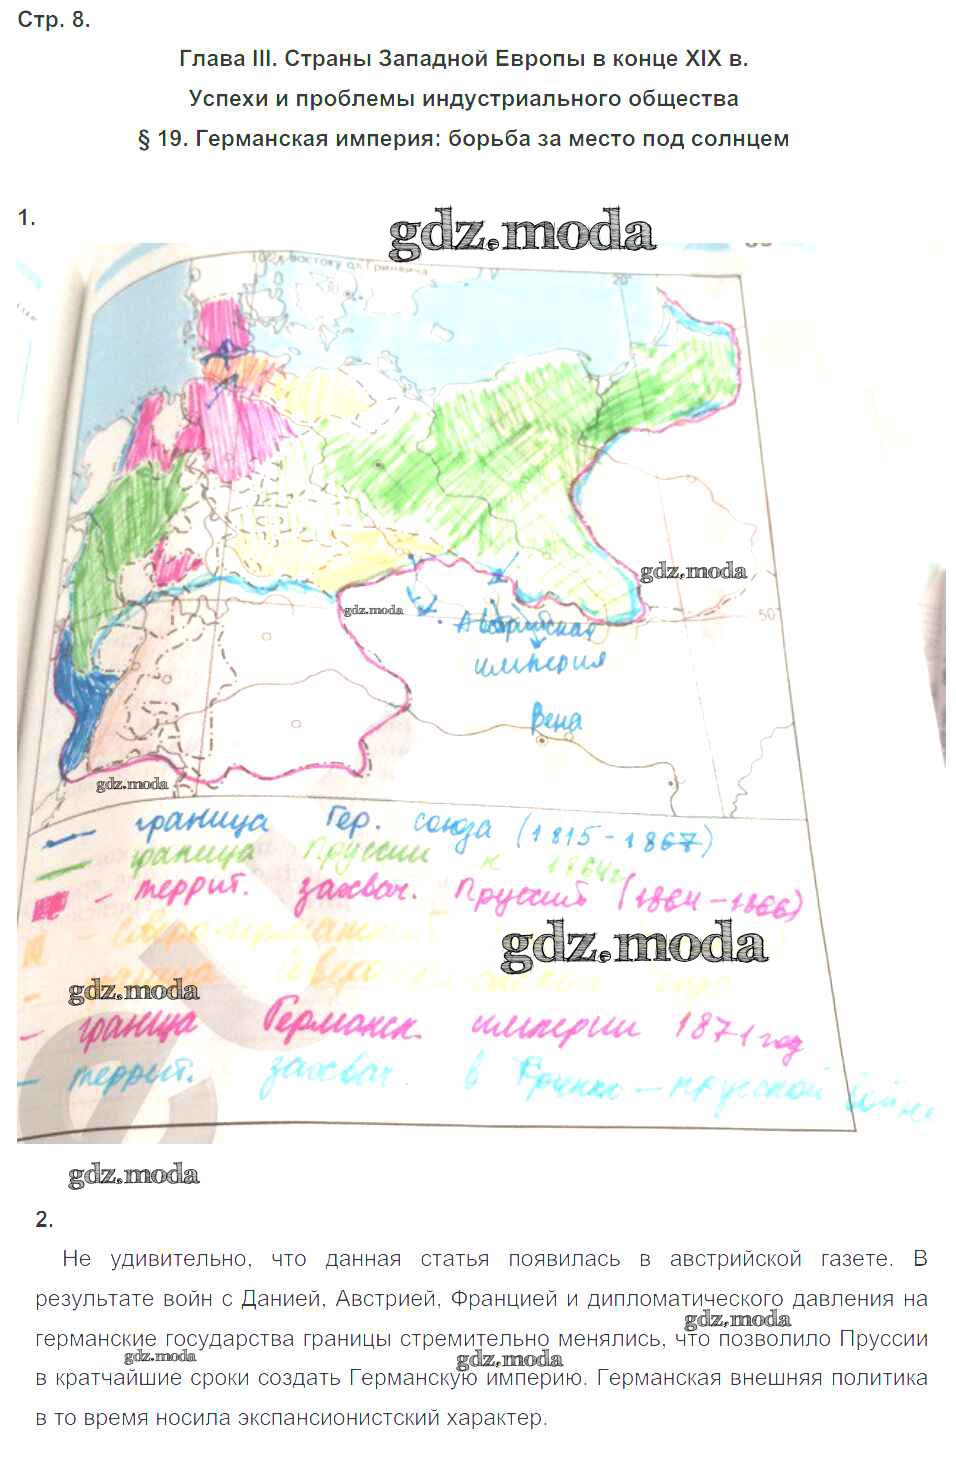 Стр. 8.
Глава III. Страны Западной Европы в конце XIX в.
Успехи и проблемы индустриального общества
§ 19. Германская империя: борьба за место под солнцем
1.
gdz.moda
10° к востоку от Гринвича
20°
gdz.moda
gdz.moda
50°
Австрийская
империя
Вена
gdz.moda
граница Гер. союза (1815-1867)
граница Пруссии к 1864г
- террит. захвач. Пруссией (1864-1866)
gdz.moda
gdz.moda
- граница Германск. империи 1871 год
- террит. захвач. в Франко-прусской войне
gdz.moda
2.
Не удивительно, что данная статья появилась в австрийской газете. В
результате войн с Данией, Австрией, Францией и дипломатического давления на
gdz.moda
германские государства границы стремительно менялись, что позволило Пруссии
gdz.moda gdz.moda
в кратчайшие сроки создать Германскую империю. Германская внешняя политика
в то время носила экспансионистский характер.